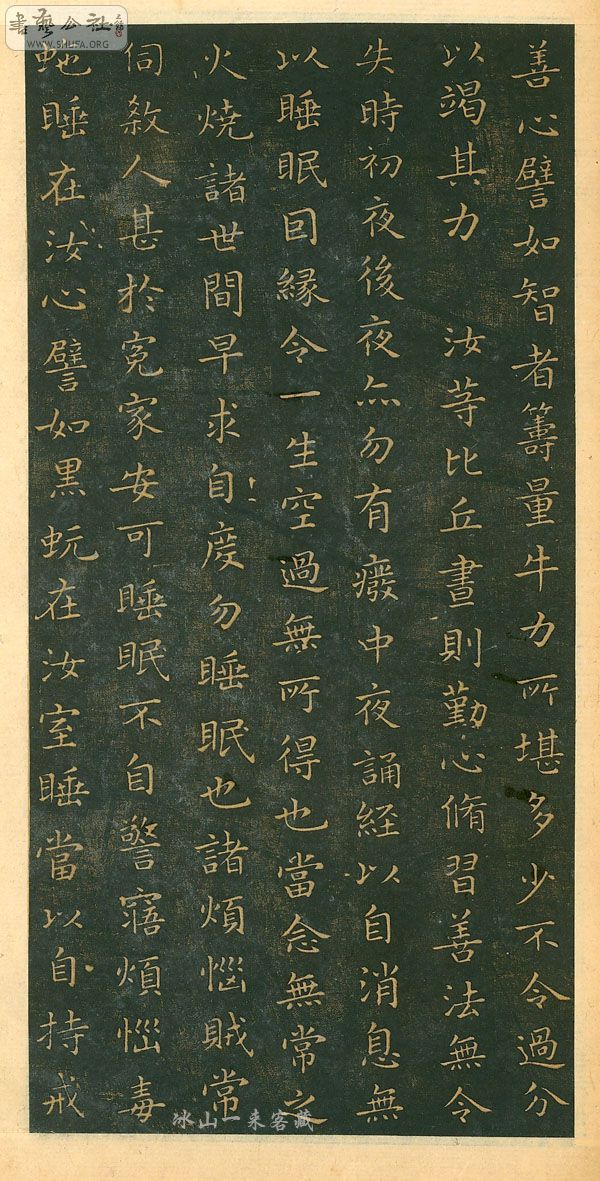 書藝公社
WWW.SHUFA.ORG
善心譬如智者籌量牛力所堪多少不令過分
以竭其力　汝等比丘晝則勤心脩習善法無令
失時初夜後夜亦勿有癈中夜誦經以自消息無
以睡眠因緣令一生空過無所得也當念無常之
火燒諸世間早求自度勿睡眠也諸煩惱賊常
伺殺人甚於寃家安可睡眠不自警寤煩惱毒
虵睡在汝心譬如黑蚖在汝室睡當以自持戒
冰山一来客藏